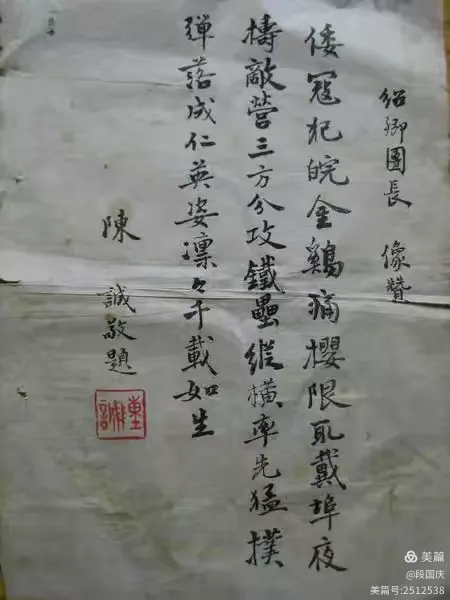 紹卿團長 像贊
倭寇犯皖金鷄痛櫻限取戴埠夜
擣敵營三方分攻鐵壘縱橫率先猛撲
彈落成仁英姿凛々千載如生
陳誠敬題
美篇
@段国庆
美篇号:2512538